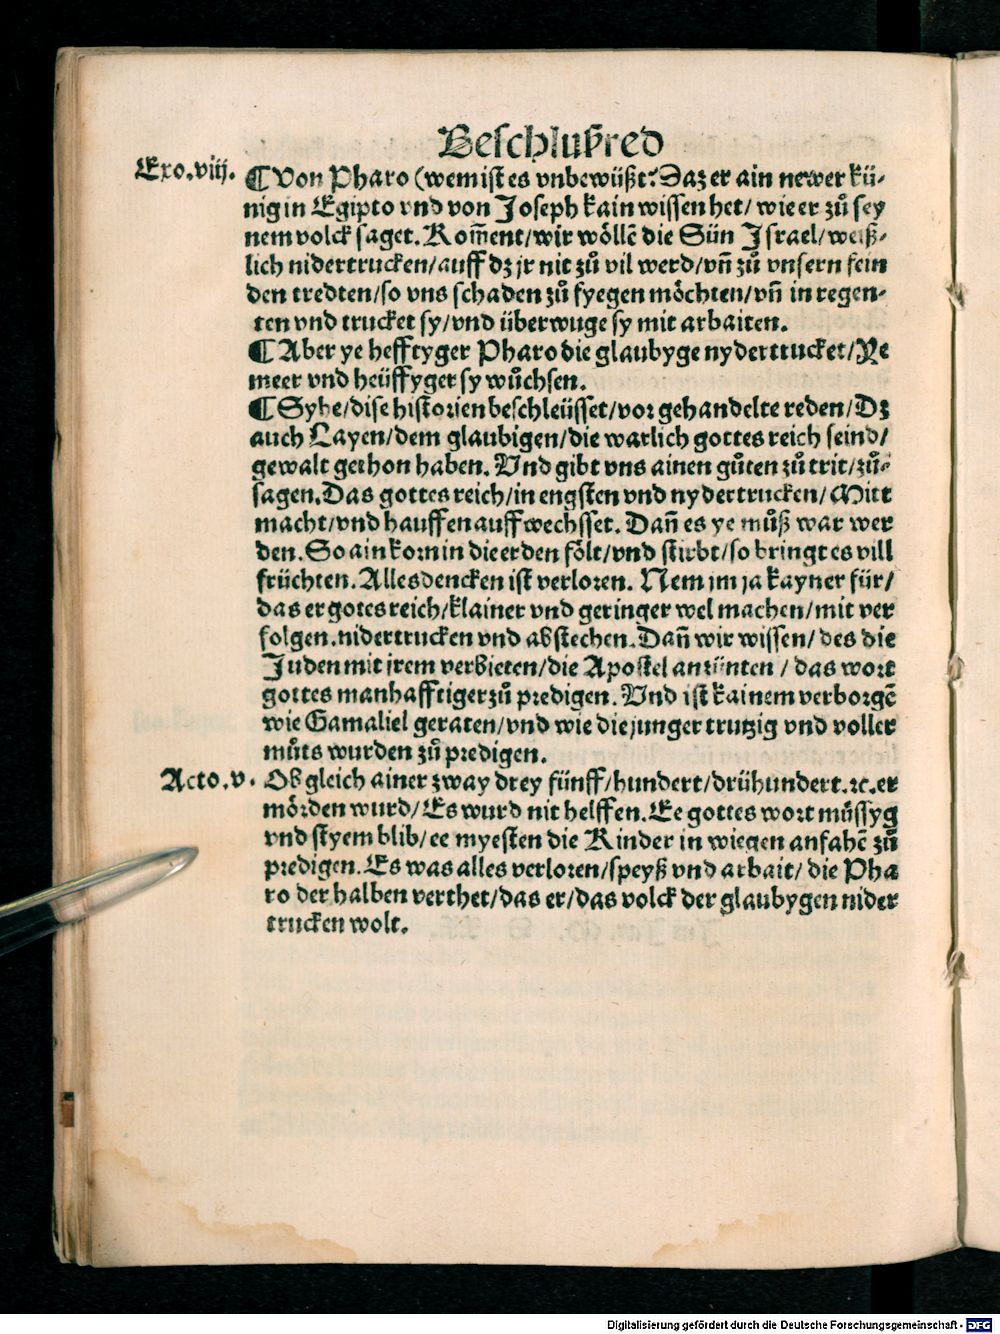 Beschlußred
Exo.viij.
¶ Von Pharo (wem ist es vnbewüßt? Daz er ain newer kü⸗
nig in Egipto vnd von Joseph kain wissen het/ wie er zuͦ sey
nem volck saget. Kom̄ent/wir wöllē die Sün Israel/weiß⸗
lich nidertrucken/auff dz jr nit zuͦ vil werd/vn̄ zuͦ vnsern fein
den tredten/so vns schaden zuͦ fyegen möchten/vn̄ in regen⸗
ten vnd trucket sy/vnd überwuge sy mit arbaiten.
¶ Aber ye hefftyger Pharo die glaubyge nyderttucket/Ye
meer vnd heüffyger sy wuͦchsen.
¶ Syhe/dise historien beschleüsset/vor gehandelte reden/Dz
auch Layen/dem glaubigen/die warlich gottes reich seind/
gewalt gethon haben. Vnd gibt vns ainen guͦten zuͦ trit/zuͦ⸗
sagen. Das gottes reich/in engsten vnd nydertrucken/Mitt
macht/vnd hauffen auff wechsset. Dan̄ es ye muͦß war wer
den. So ain korn in die erden fölt/vnd stirbt/so bringt es vill
früchten. Alles dencken ist verloren. Nem jm ja kayner für/
das er gotes reich/klainer vnd geringer wel machen/mit ver
folgen. nidertrucken vnd abstechen. Dan̄ wir wissen/ des die
Juden mit jrem verbieten/die Apostel anzünten / das wort
gottes manhafftiger zuͦ predigen. Vnd ist kainem verborgē
wie Gamaliel geraten/vnd wie die junger trutzig vnd voller
muͦts wurden zuͦ predigen.
Acto.v.
Ob gleich ainer zway drey fünff/hundert/drühundert.ꝛc.er
mörden wurd/Es wurd nit helffen. Ee gottes wort muͤssyg
vnd styem blib/ee myesten die Kinder in wiegen anfahē zuͦ
predigen. Es was alles verloren/speyß vnd arbait/ die Pha
ro der halben verthet/das er/das volck der glaubygen nider
trucken wolt.
Digitalisierung gefördert durch die Deutsche Forschungsgemeinschaft - DFG